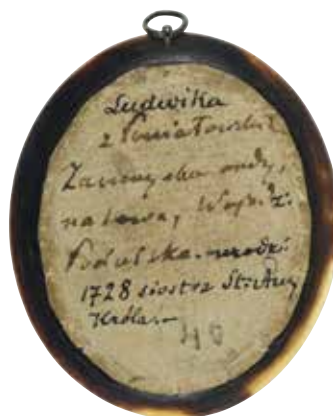 Ludwika
z Poniatowskich
Zamoyska ordy,
natowa, Wojew:
Podolska. urodzi:
1728 siostra St: Aug
Króla.
40